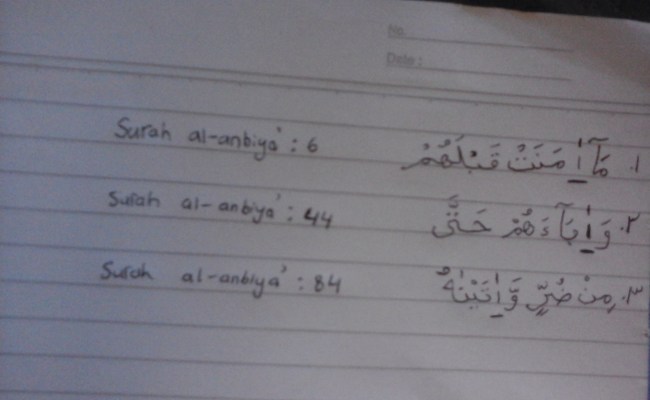 No
Date :
Surah al-anbiya' : 6 ١. مَآ اٰمَنَتْ قَبْلَهُمْ
Surah al-anbiya' : 44 ٢. وَاٰبَآءَهُمْ حَتّٰى
Surah al-anbiya' : 84 ٣. مِنْ ضُرٍّ وَّاٰتَيْنٰهُ